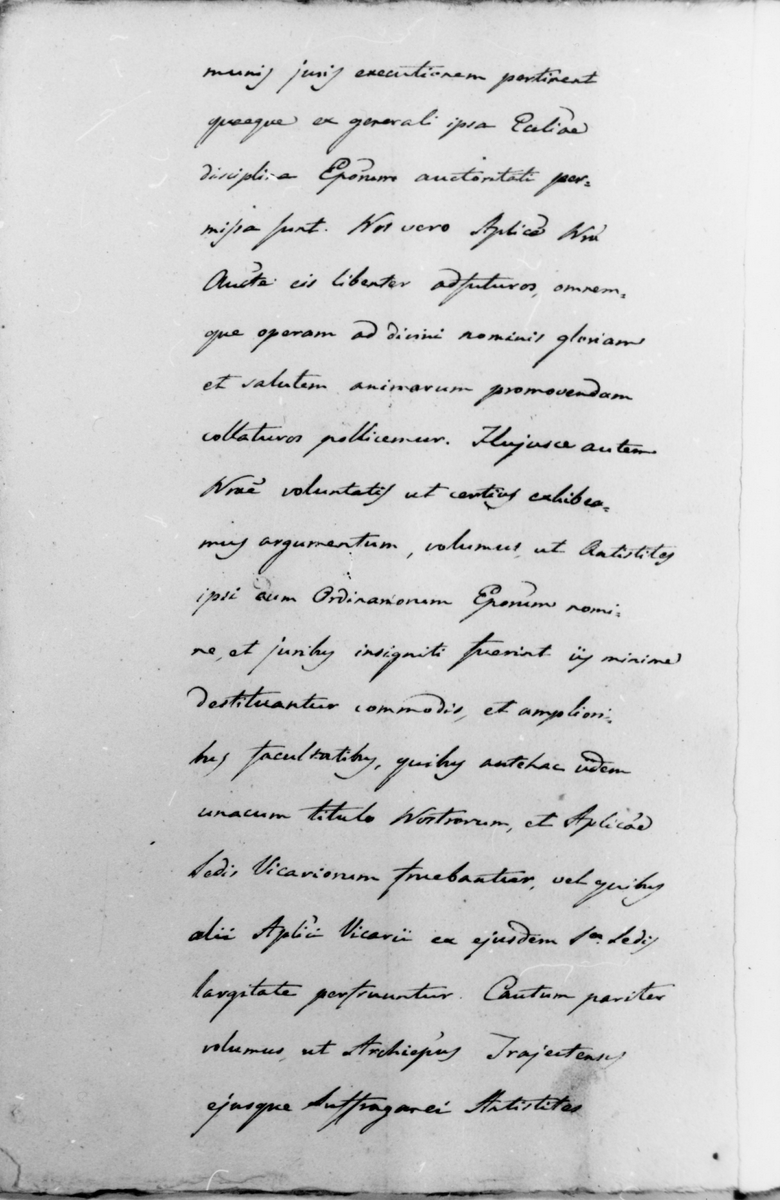 munis juris executionem pertinent
quaeque ex generali ipsa Eccliae
disciplina Eporum auctoritati per=
missa sunt. Nos vero Aplicâ Nrâ
Auctê eis libenter adfuturos, omnem=
que operam ad divini nominis gloriam
et salutem animarum promovendam
collaturos pollicemur. Hujusce autem
Nrae voluntatis ut certius exhibea=
mus argumentum, volumus, ut Antistites
ipsi cum Ordinariorum Eporum nomi=
ne, et juribus insigniti fuerint iis minime
destituantur commodis, et ampliori=
bus facultatibus, quibus antehac iidem
unacum titulo Nostrorum, et Aplicae
Sedis Vicariorum fruebantur, vel quibus
alii Aplici Vicarii ex ejusdem Sae Sedis
largitate perfruuntur. Cautum pariter
volumus, ut Archiepus Trajectensis
ejusque Suffraganei Antistites